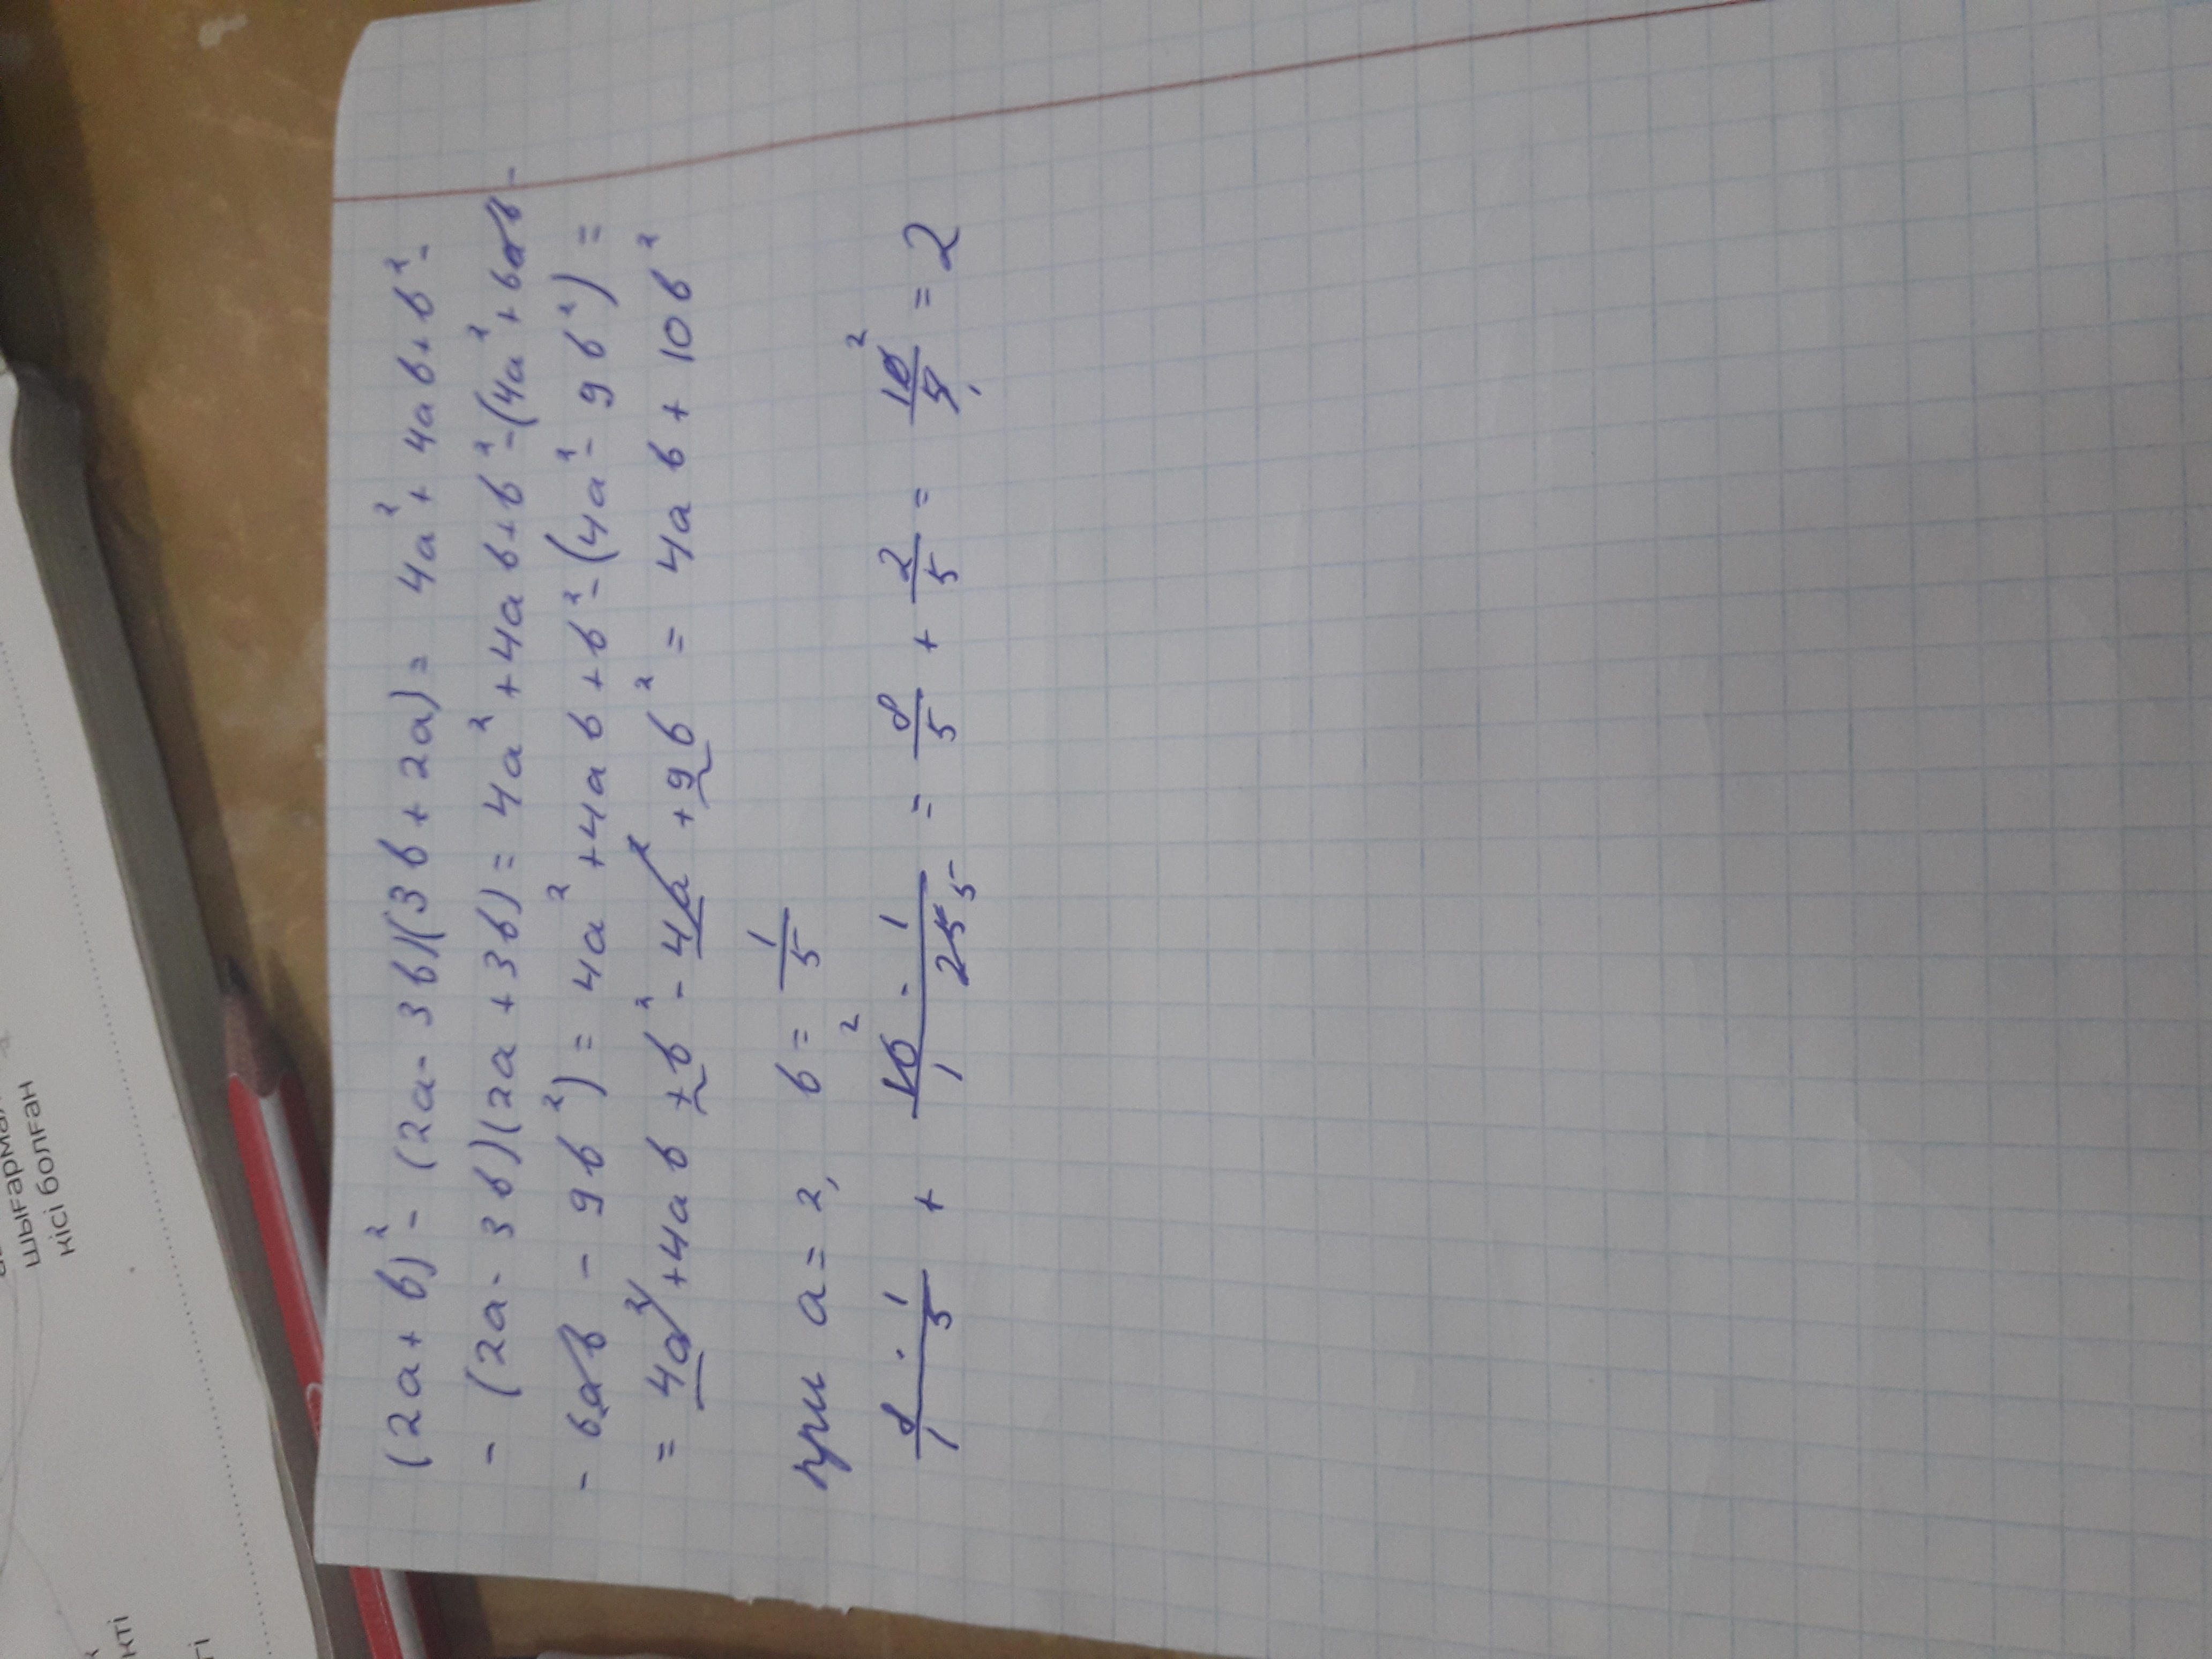 (2a + b)² - (2a - 3b)(3b + 2a) = 4a² + 4ab + b² -
- (2a - 3b)(2a + 3b) = 4a² + 4ab + b² - (4a² + 6ab -
- 6ab - 9b²) = 4a² + 4ab + b² - (4a² - 9b²) =
= 4a² + 4ab + b² - 4a² + 9b² = 4ab + 10b²
при a = 2, b = 1/5
8/1 · 1/5 + 10/1 · 1/25 = 8/5 + 2/5 = 10/5 = 2
кісі болған